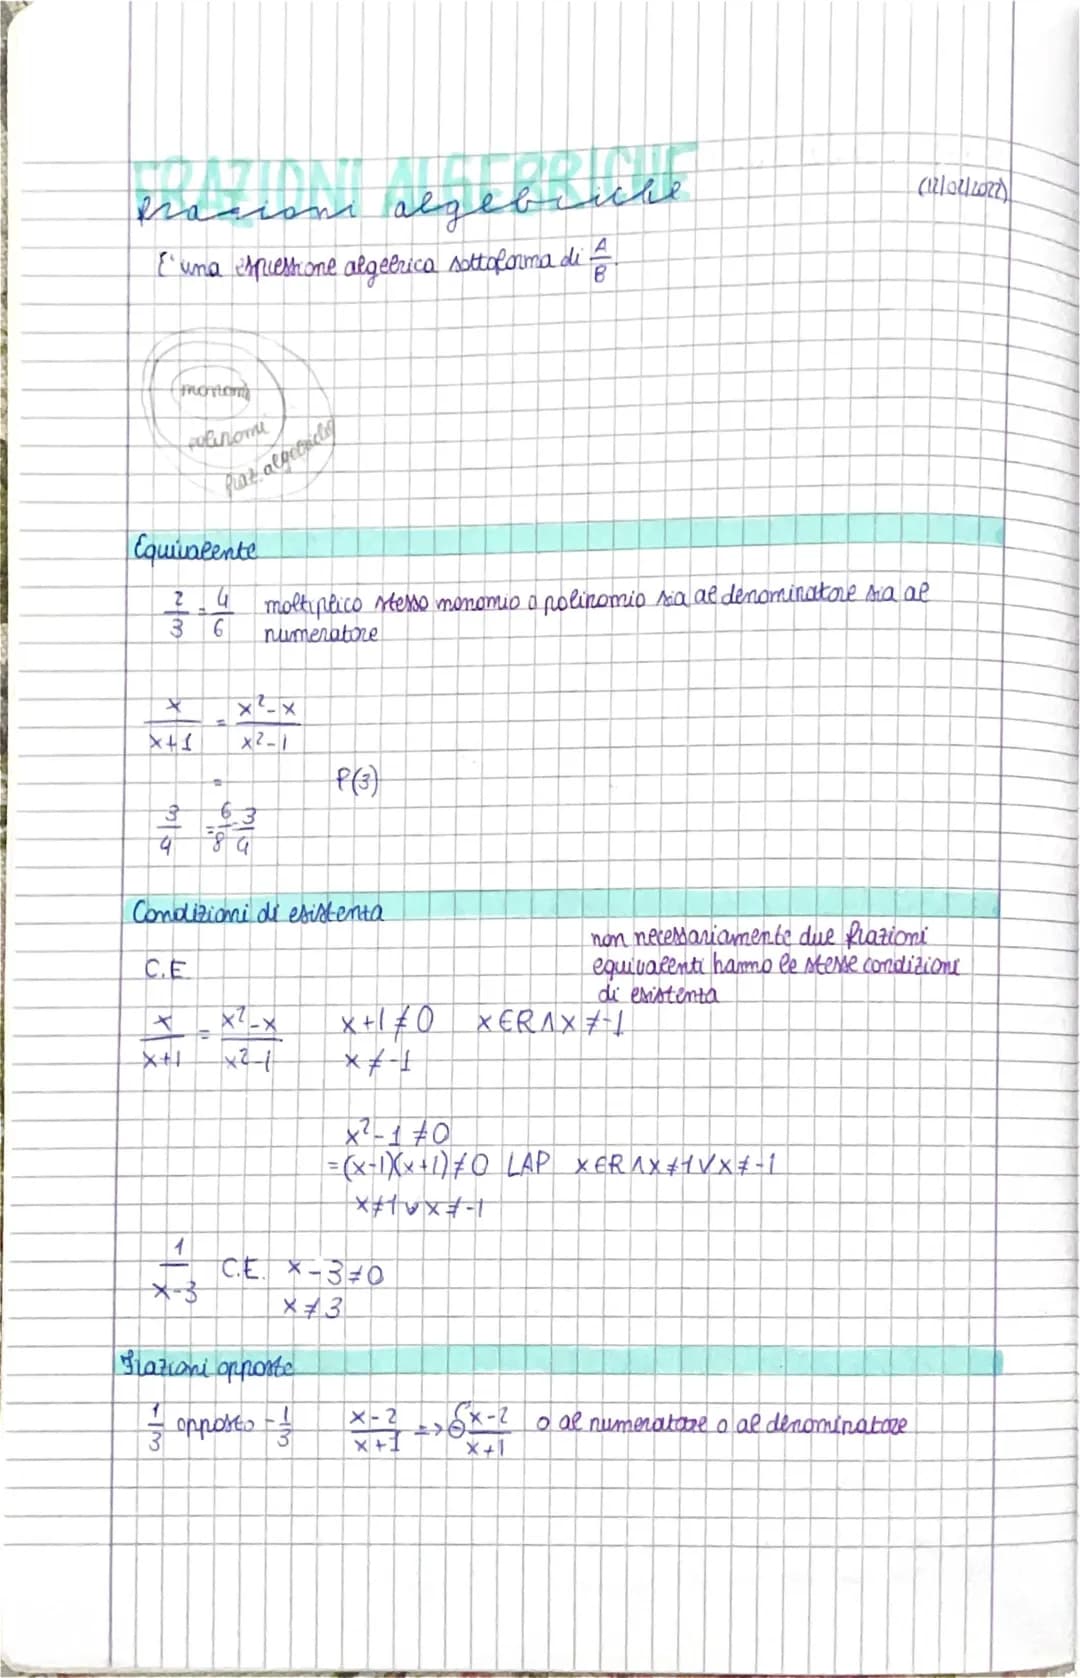 FRAZIONI ALGEBRICHE
frazioni algebriche
(12/02/2022)
E' una espressione algebrica sottoforma di A/B.
monomi
polinomi
fraz. algebriche
Equivalente
2/3 = 4/6 moltiplico stesso monomio o polinomio sia al denominatore sia al
numeratore
x/(x+1) = (x²-x)/(x²-1)
= P(3)
3/4 = 6/8 = 3/4
Condizioni di esistenza
non necessariamente due frazioni
C.E. equivalenti hanno le stesse condizioni
di esistenza
x/(x+1) = (x²-x)/(x²-1) x+1≠0 x∈R∧x≠-1
x≠-1
x²-1≠0
=(x-1)(x+1)≠0 LAP x∈R∧x≠1∨x≠-1
x≠1∨x≠-1
1/(x-3) C.E. x-3≠0
x≠3
Frazioni opposte
1/3 opposto -1/3 (x-2)/(x+1) => ⊖(x-2)/(x+1) o al numeratore o al denominatore